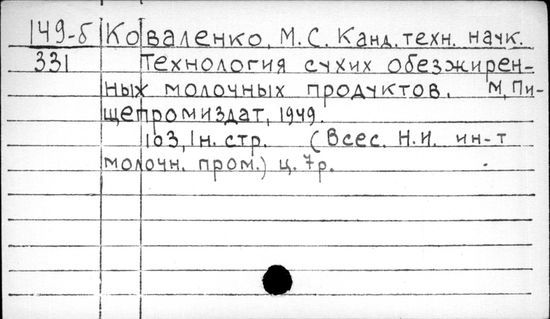 149-б Коваленко, М.С. Канд. техн. наук.
331 Технология сухих обезжирен-
ных молочных продуктов. М, Пи-
щепромиздат, 1949.
103, 1н. стр. (Всес. Н.И. ин-т
молочн. пром.) ц. 7р.